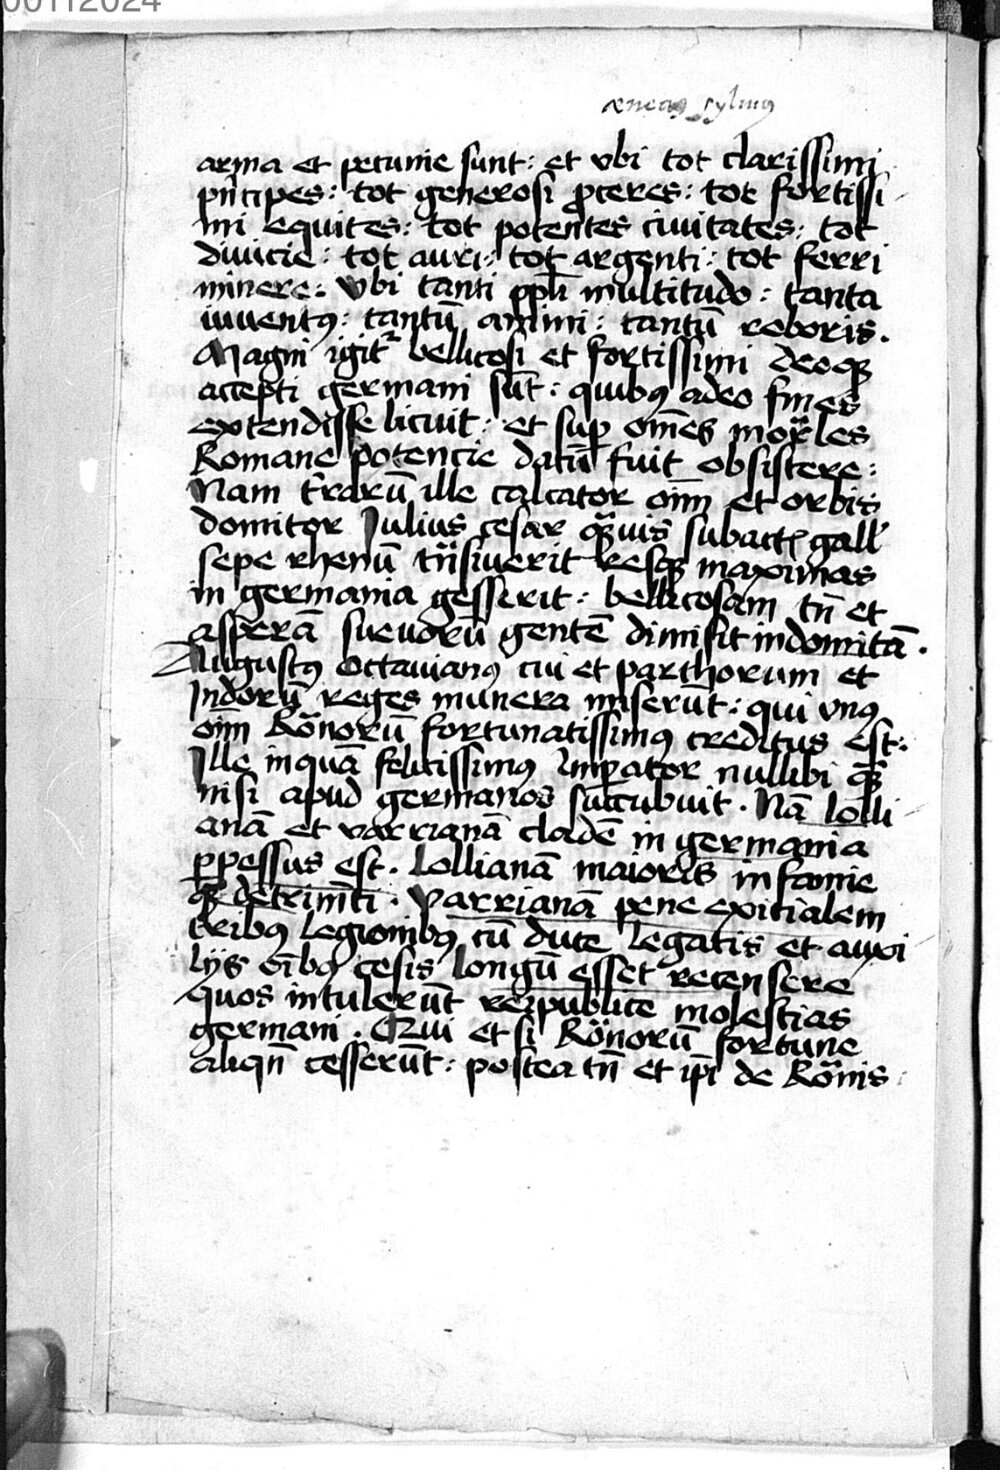 00112024
æneas sylvius
arma et pecunie sunt: et vbi tot clarissimi
pͥncipes: tot generosi ꝓceres: tot fortissi
mi equites: tot potentes ciuitates: tot
diuicie: tot auri: tot argenti: tot ferri
minere: Vbi tanti ppłi multitudo: tanta
iuuentꝰ: tantū animi: tantū roboris.
Magni igitᷣ bellicosi et fortissimi deoqꝫ
accepti germani sūt: quibꝰ adeo fines
extendisse licuit: et suꝑ om̄es mor̃les
Romane potencie datū fuit obsistere:
Nam t̄rarū ille calcator oīm et orbis
domitor Julius cesar qͣuis subactꝭ gall̓
sepe rhenū tñsiuerit resqꝫ maximas
in germania gesserit: bellicosam tñ et
asperā sueuorū gentē dimisit indomitā.
Augustꝰ Octauianꝰ cui et parthorum et
Indorū reges munera miserūt: qui vnꝰ
oīm Rōnorū fortunatissimꝰ creditus est:
Ille inquā felicissimꝰ Imꝑator nullibi qͣꝫ
nisi apud germanos succubuit. Nā lolli
anā et varrianā cladē in germania
ꝑpessus est. Lollianā maioris infamie
qͣꝫ detrim̄ti. Varrianā pene exitialem
tribꝰ legionibꝰ cū duce legatis et auxi
lijs oībꝰ cesis Longū esset recensere
quos intulerūt reipublice molestias
germani. Qui et si Rōnorū fortune
aliqñ cesserūt: postea tñ et ip̄i de Rōnis: